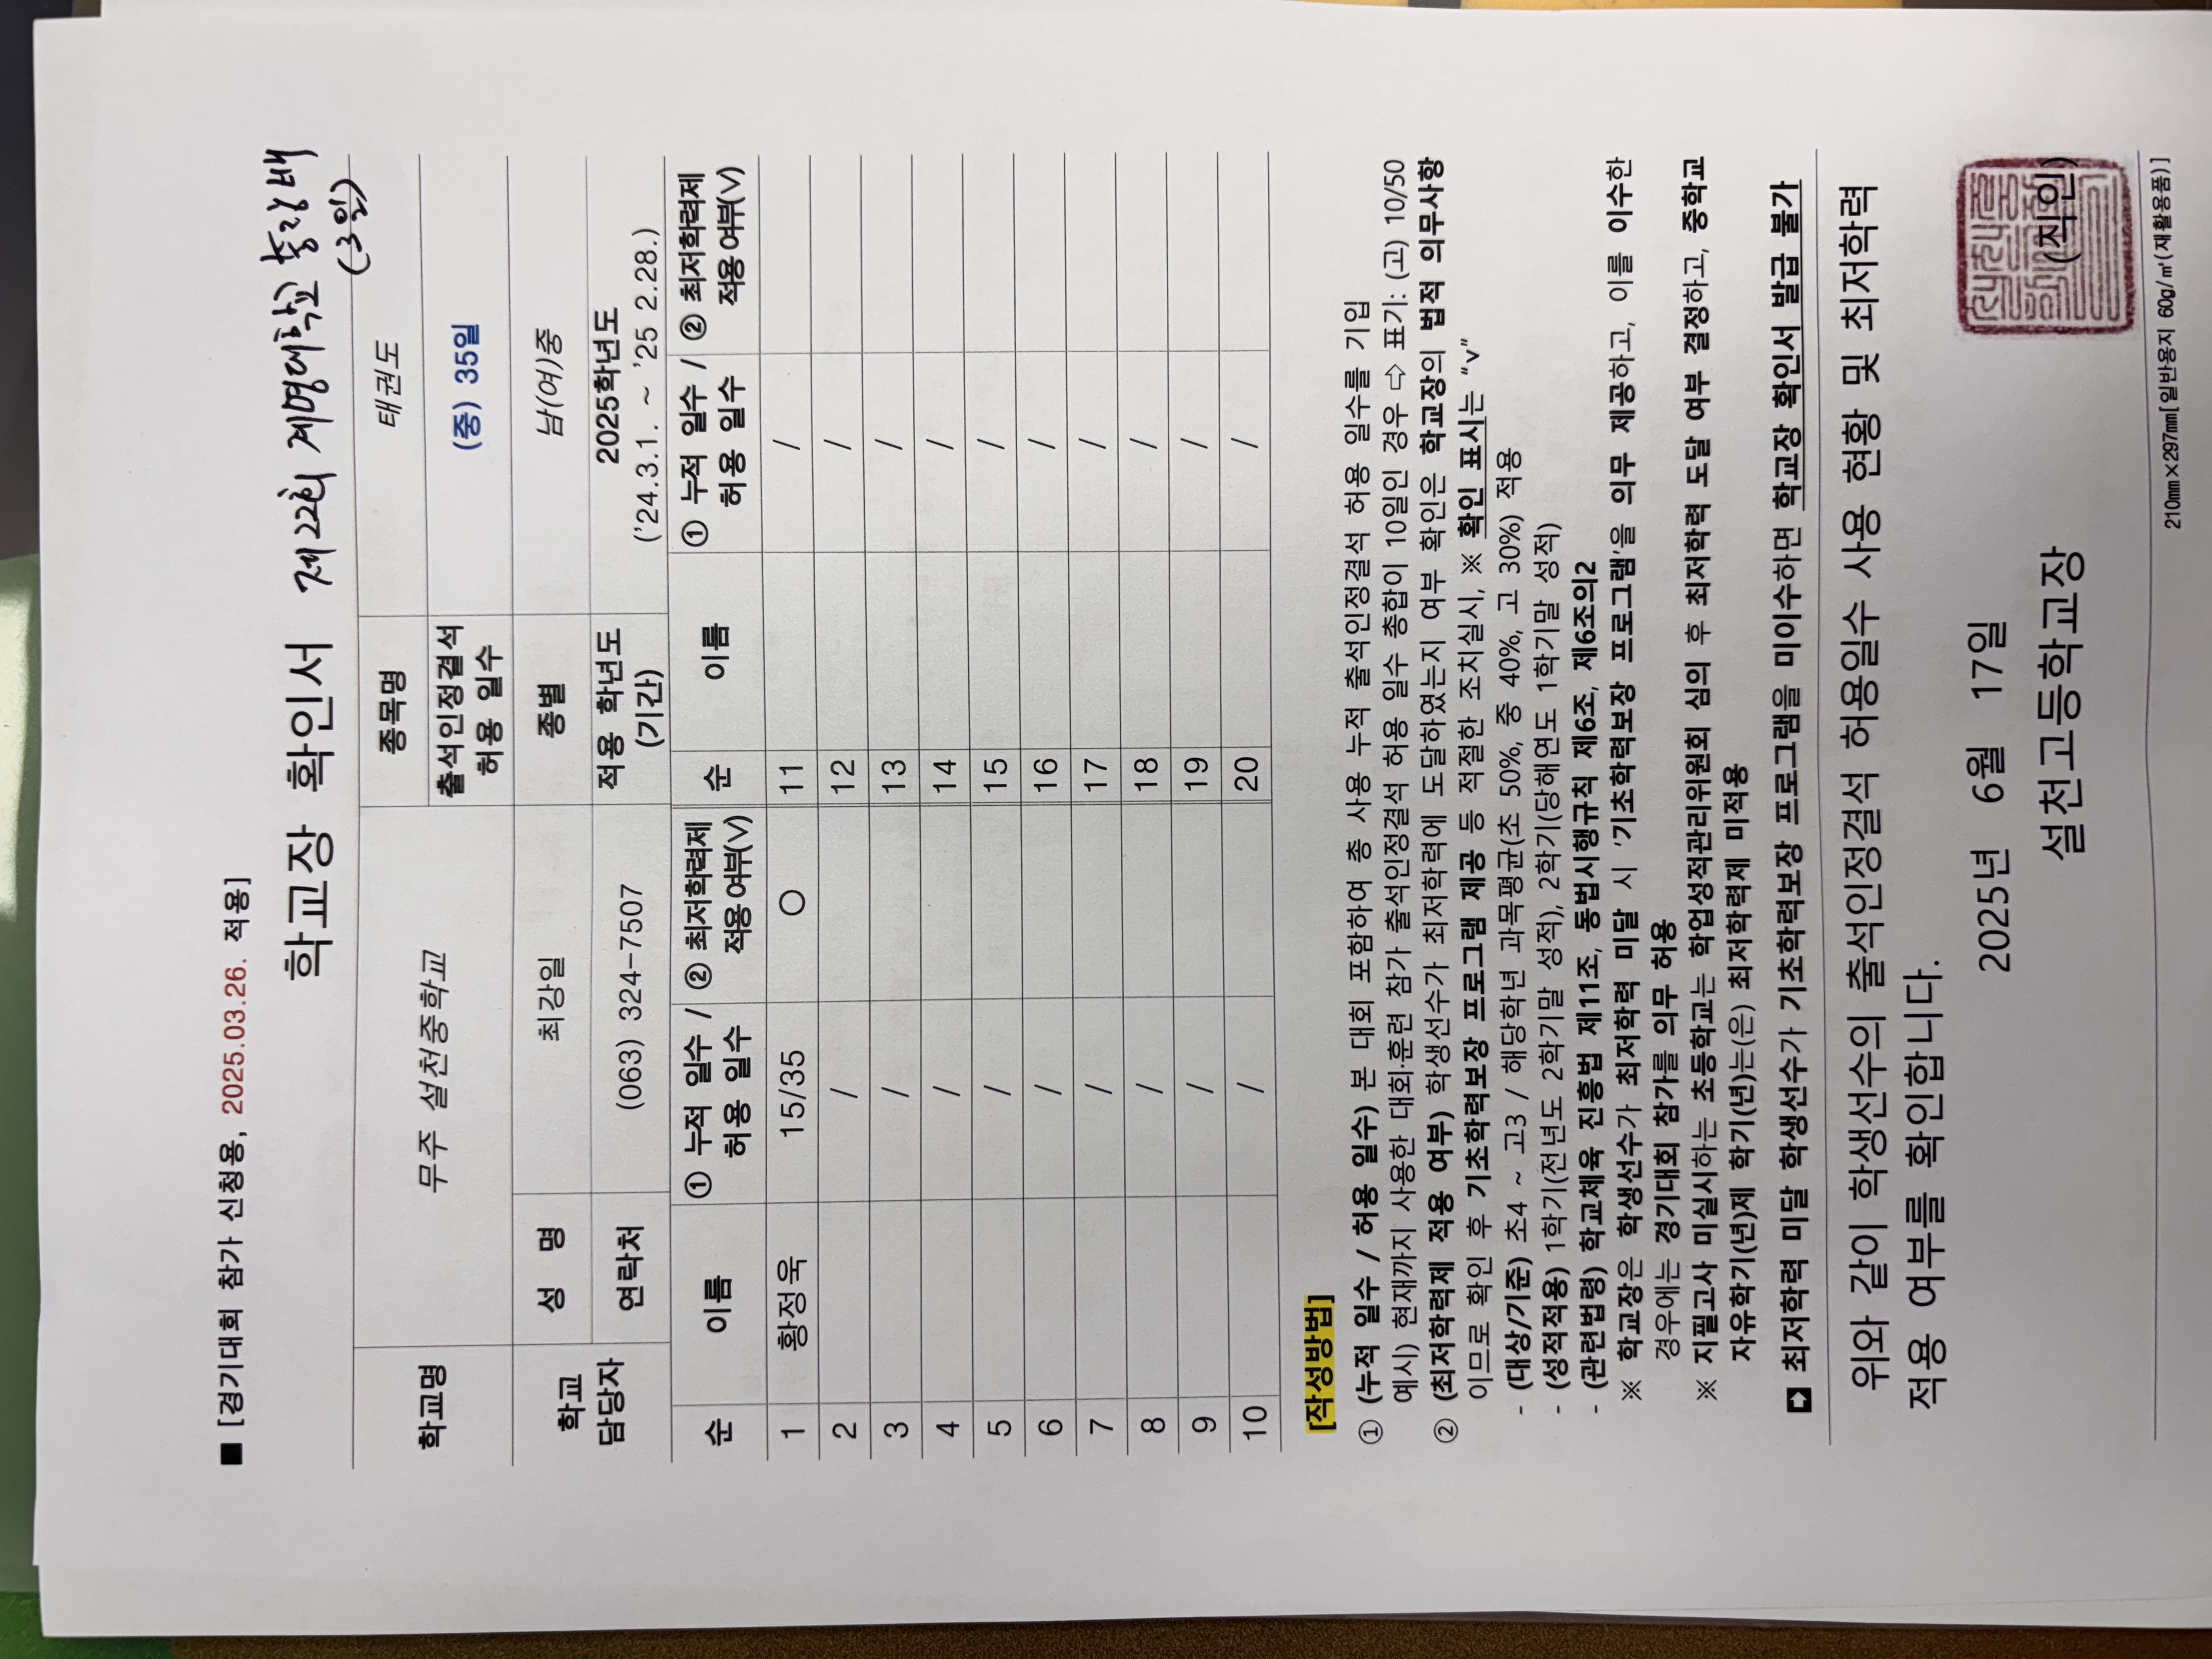 ■ [경기대회 참가 신청용, 2025.03.26. 적용]
학교장 확인서 제22회 계명대학교 총장배
(3일)
학교명 무주 설천중학교 종목명 태권도
출석인정결석 허용 일수 (중) 35일
학교 담당자 성 명 최강일 종별 남(여)중
연락처 (063) 324-7507 적용 학년도 (기간) 2025학년도 ('24.3.1. ~ '25 2.28.)
순 이름 ① 누적 일수 / 허용 일수 ② 최저학력제 적용여부(V) 순 이름 ① 누적 일수 / 허용 일수 ② 최저학력제 적용여부(V)
1 황정욱 15/35 ○ 11 /
2 / 12 /
3 / 13 /
4 / 14 /
5 / 15 /
6 / 16 /
7 / 17 /
8 / 18 /
9 / 19 /
10 / 20 /
[작성방법]
① (누적 일수 / 허용 일수) 본 대회 포함하여 총 사용 누적 출석인정결석 허용 일수를 기입
예시) 현재까지 사용한 대회·훈련 참가 출석인정결석 허용 일수 총합이 10일인 경우 ⇨ 표기: (고) 10/50
② (최저학력제 적용 여부) 학생선수가 최저학력에 도달하였는지 여부 확인은 학교장의 법적 의무사항
이므로 확인 후 기초학력보장 프로그램 제공 등 적절한 조치실시, ※ 확인 표시는 "v"
- (대상/기준) 초4 ~ 고3 / 해당학년 과목평균(초 50%, 중 40%, 고 30%) 적용
- (성적적용) 1학기(전년도 2학기말 성적), 2학기(당해연도 1학기말 성적)
- (관련법령) 학교체육 진흥법 제11조, 동법시행규칙 제6조, 제6조의2
※ 학교장은 학생선수가 최저학력 미달 시 '기초학력보장 프로그램'을 의무 제공하고, 이를 이수한
경우에는 경기대회 참가를 의무 허용
※ 지필고사 미실시하는 초등학교는 학업성적관리위원회 심의 후 최저학력 도달 여부 결정하고, 중학교
자유학기(년)제 학기(년)는(은) 최저학력제 미적용
➡ 최저학력 미달 학생선수가 기초학력보장 프로그램을 미이수하면 학교장 확인서 발급 불가
위와 같이 학생선수의 출석인정결석 허용일수 사용 현황 및 최저학력
적용 여부를 확인합니다.
2025년 6월 17일
설천고등학교장 (직인)
210mm×297mm[일반용지 60g/㎡(재활용품)]